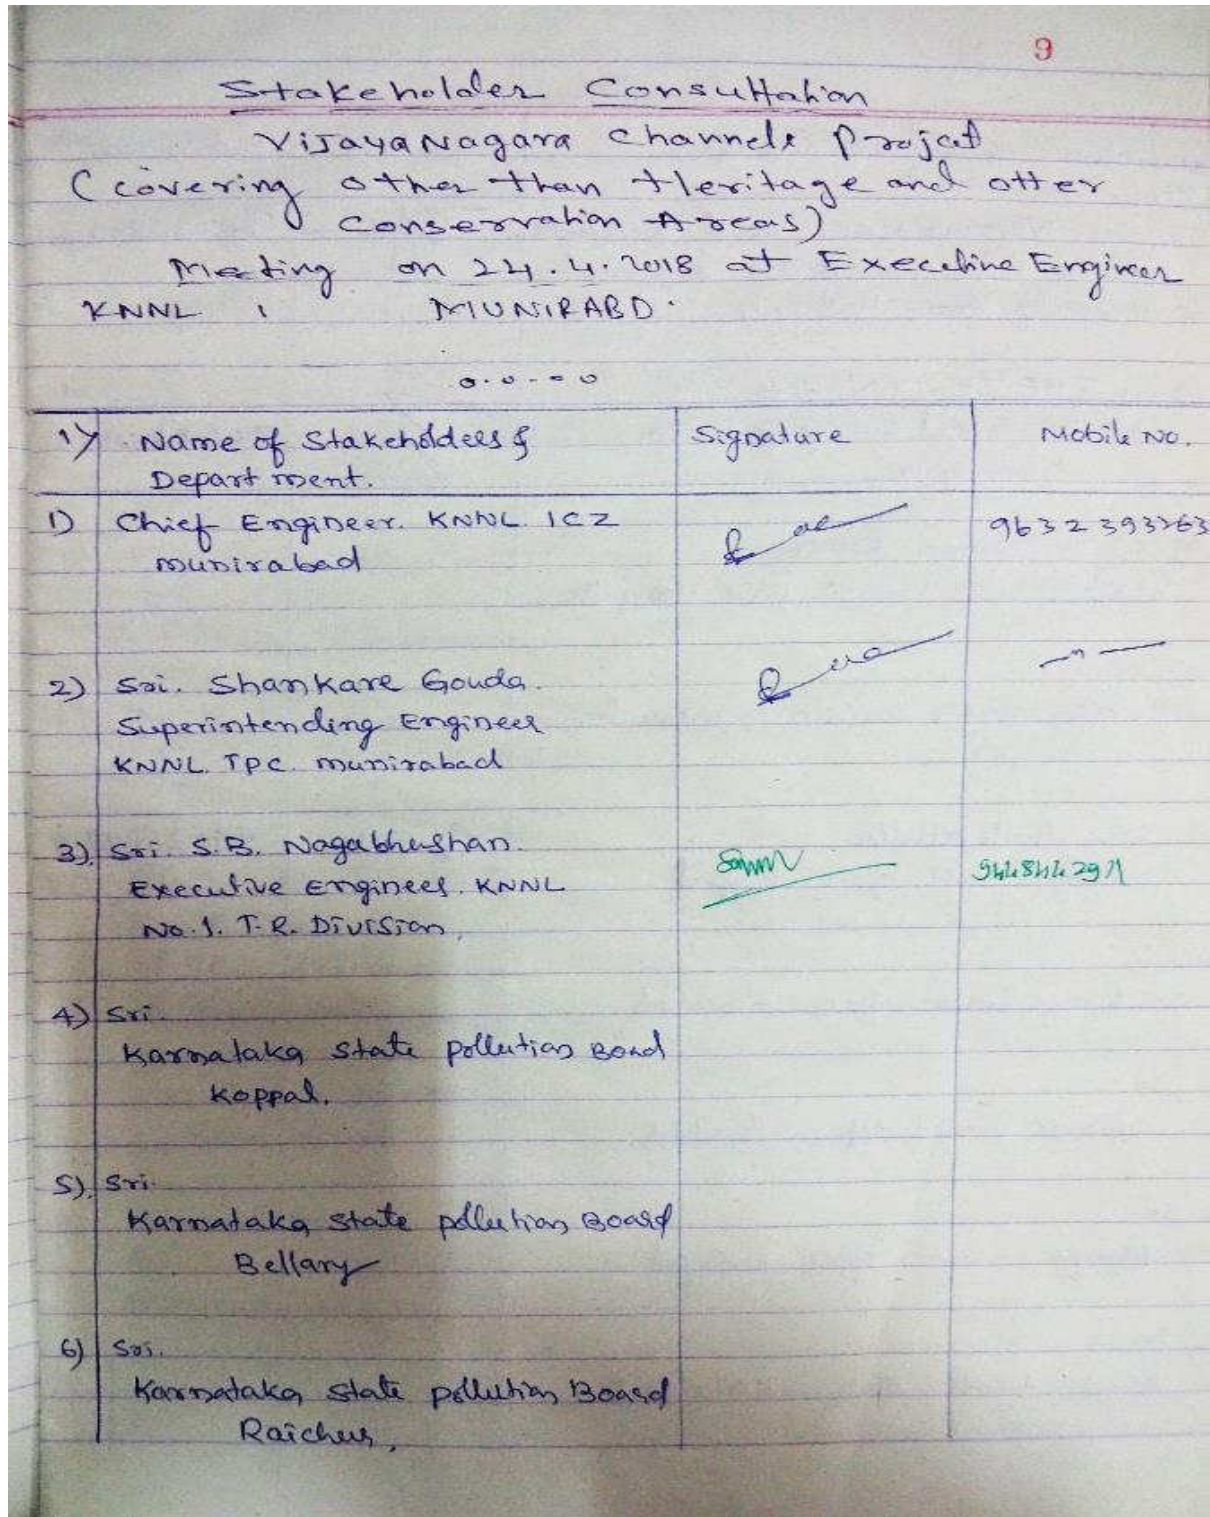 9
Stakeholder Consultation
VijayaNagara Channels Project
(covering other than Heritage and otter
Conservation Areas)
Meeting on 24.4.2018 at Executive Engineer
KNNL, MUNIRABD.
1) Name of Stakeholders & Signature Mobile No.
Department.
1) Chief Engineer. KNNL. ICZ
munirabad
2) Sri. Shankare Gouda.
Superintending Engineer
KNNL. TPC. munirabad
3). Sri. S.B. Nagabhushan.
Executive Engineer. KNNL
No.1. T.R. Division,
4) Sri.
Karnataka State pollution Board
Koppal.
5). Sri.
Karnataka State pollution Board
Bellary
6) Sri.
Karnataka State pollution Board
Raichur,